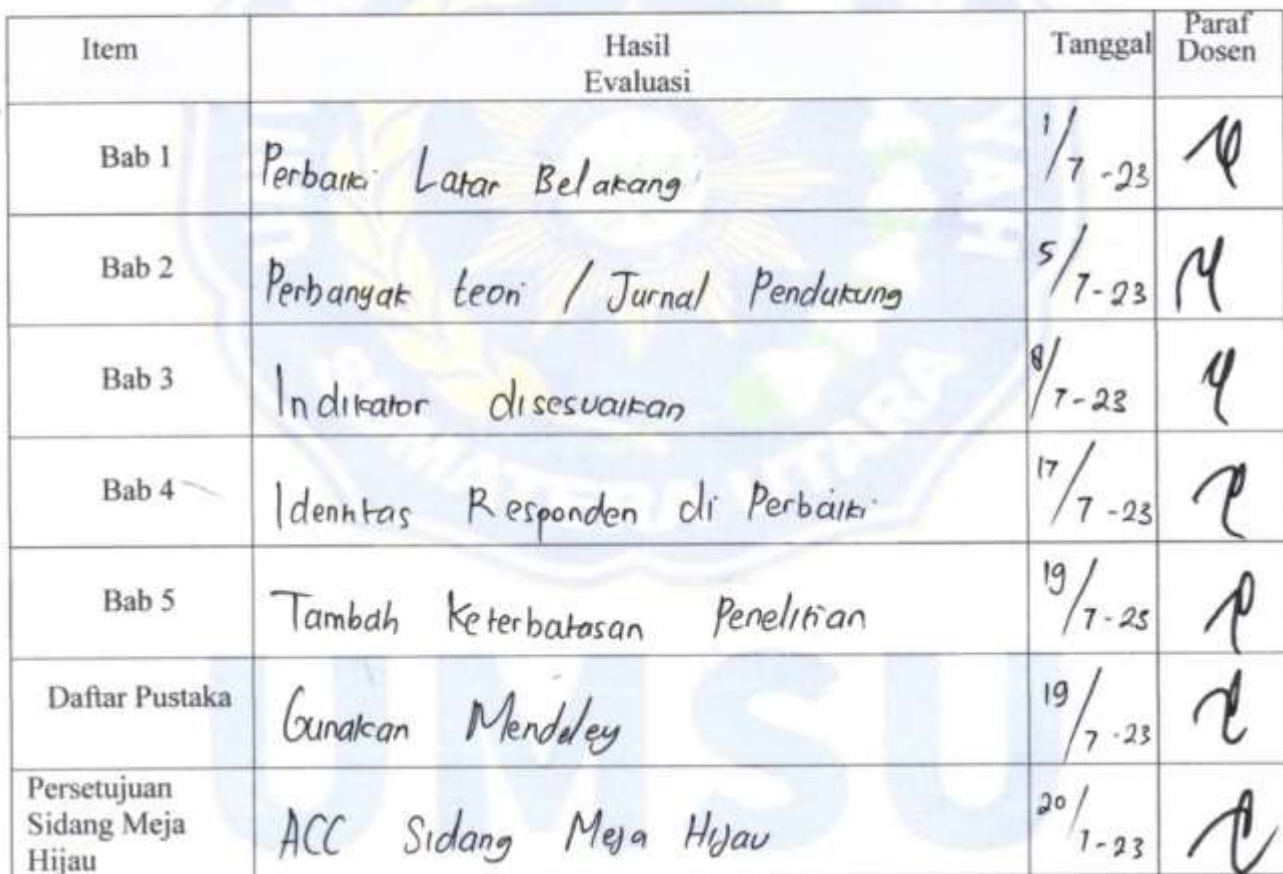 Item Hasil Evaluasi Tanggal Paraf Dosen
Bab 1 Perbaiki Latar Belakang 1/7-23
Bab 2 Perbanyak teori / Jurnal Pendukung 5/7-23
Bab 3 Indikator disesuaikan 8/7-23
Bab 4 Identitas Responden di Perbaiki 17/7-23
Bab 5 Tambah Keterbatasan Penelitian 19/7-23
Daftar Pustaka Gunakan Mendeley 19/7-23
Persetujuan
Sidang Meja
Hijau
ACC Sidang Meja Hijau 20/7-23
UMSU